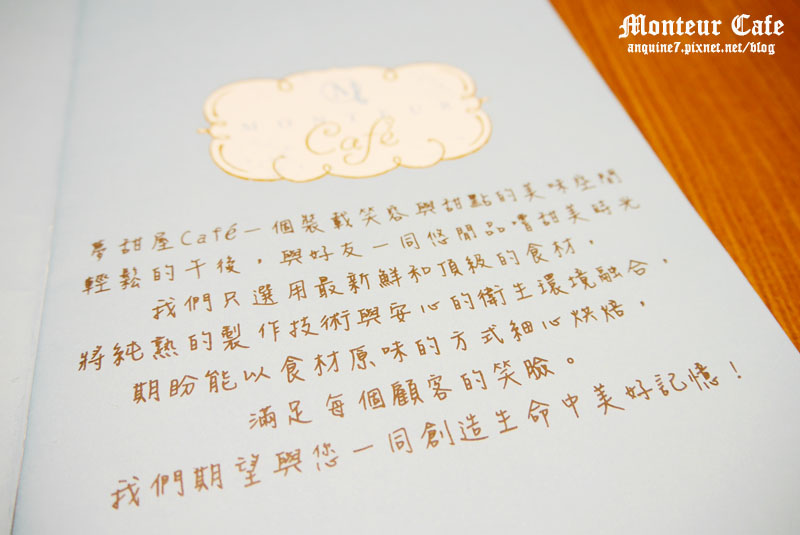 Monteur Cafe
anquine7.pixnet.net/blog
M
MONTEUR
Café
夢甜屋Café一個裝載笑容與甜點的美味空間
輕鬆的午後，與好友一同悠閒品嚐甜美時光
我們只選用最新鮮和頂級的食材，
將純熟的製作技術與安心的衛生環境融合，
期盼能以食材原味的方式細心烘焙，
滿足每個顧客的笑臉。
我們期望與您一同創造生命中美好記憶！